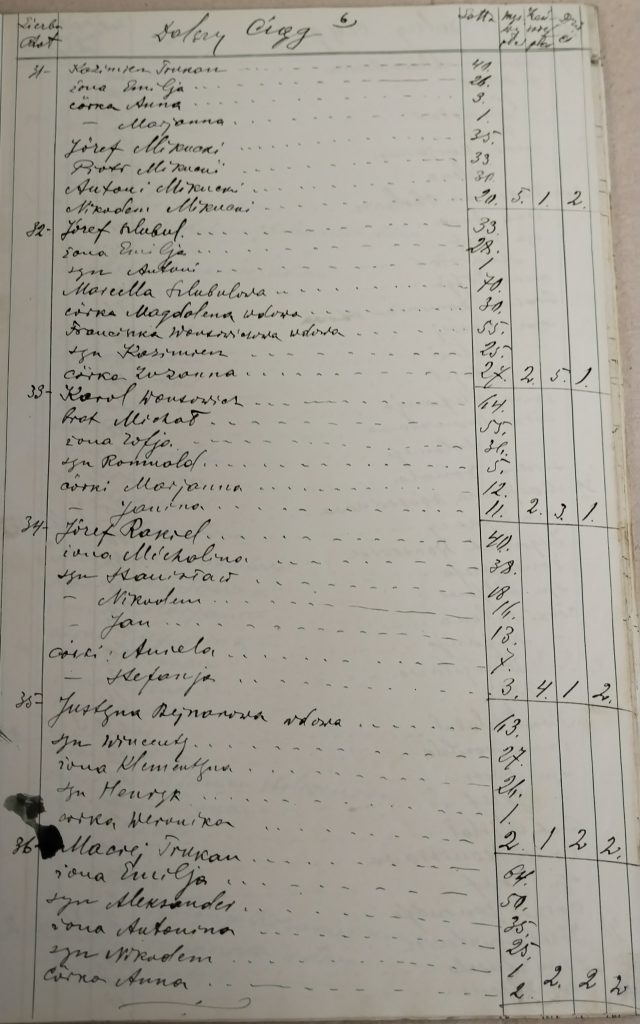 Liczba Chat Dalszy Ciąg 6 Latta
31- Kazimierz Trukan 40.
żona Emilja 26.
córka Anna 3.
— Marjanna 1.
Józef Mikucki 35.
Piotr Mikucki 33
Antoni Mikucki 30.
Nikodem Mikucki 20. 5. 1. 2.
32- Józef 33.
żona Emilja 28.
syn Antoni 1
Marcella 70.
córka Magdalena wdowa 30.
Franciszka wdowa 55.
syn Kazimierz 25.
córka Zuzanna 27. 2. 5. 1.
33- Karol 64.
brat Michał 55.
żona Zofja 36.
syn Romuald 5.
córki Marjanna 12.
— Janina 11. 2. 3. 1.
34- Józef 40.
żona Michalina 38.
syn Stanisław 18.
— Nikodem 16.
— Jan 13.
córki: Aniela 7.
— Stefanja 3. 4. 1 2.
35- Justyna wdowa 63.
syn Wincenty 27.
żona Klementyna 26.
syn Henryk 1.
córka Weronika 2. 1 2 2.
36- Maciej Trukan 64.
żona Emilja 50.
syn Aleksander 35.
żona Antonina 25.
syn Nikodem 1
córka Anna 2 2. 2 2